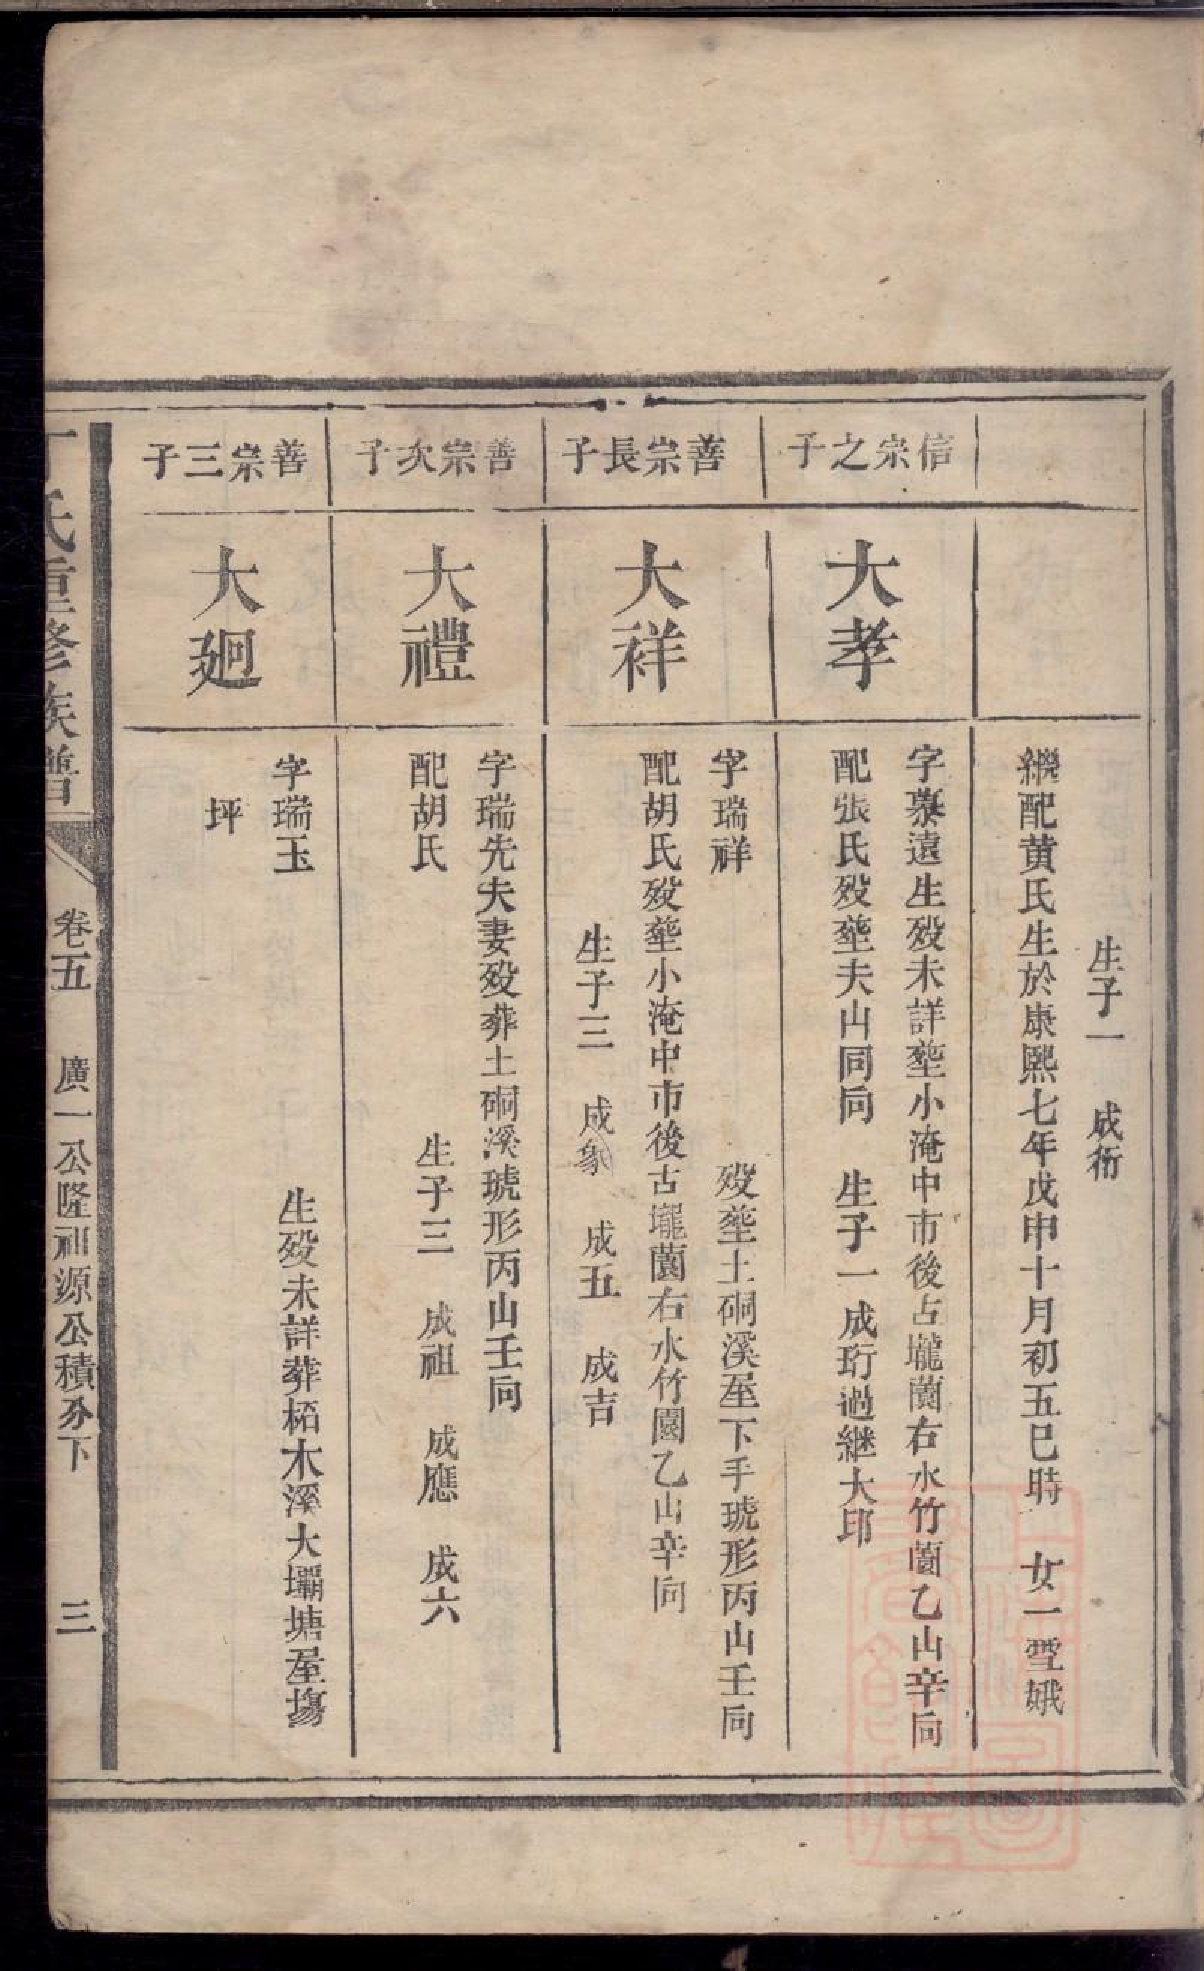 生子一　成衍
繼配黃氏生於康熙七年戊申十月初五巳時　女一雪娥
信宗之子
大孝
字慕遠生歿未詳塟小淹中市後占壠薗右水竹薗乙山辛向
配張氏歿塟夫山同向　生子一成珩過継大印
善宗長子
大祥
字瑞祥　歿塟土硐溪屋下手琥形丙山壬向
配胡氏歿塟小淹中市後古壠薗右水竹園乙山辛向
生子三　成象　成五　成吉
善宗次子
大禮
字瑞先夫妻歿葬土硐溪琥形丙山壬向
配胡氏　生子三　成祖　成應　成六
善宗三子
大廻
字瑞玉　生歿未詳葬柘木溪大壩塘屋塲
坪
丁氏重修族譜　卷五　廣一公隆祖源公積分下　三